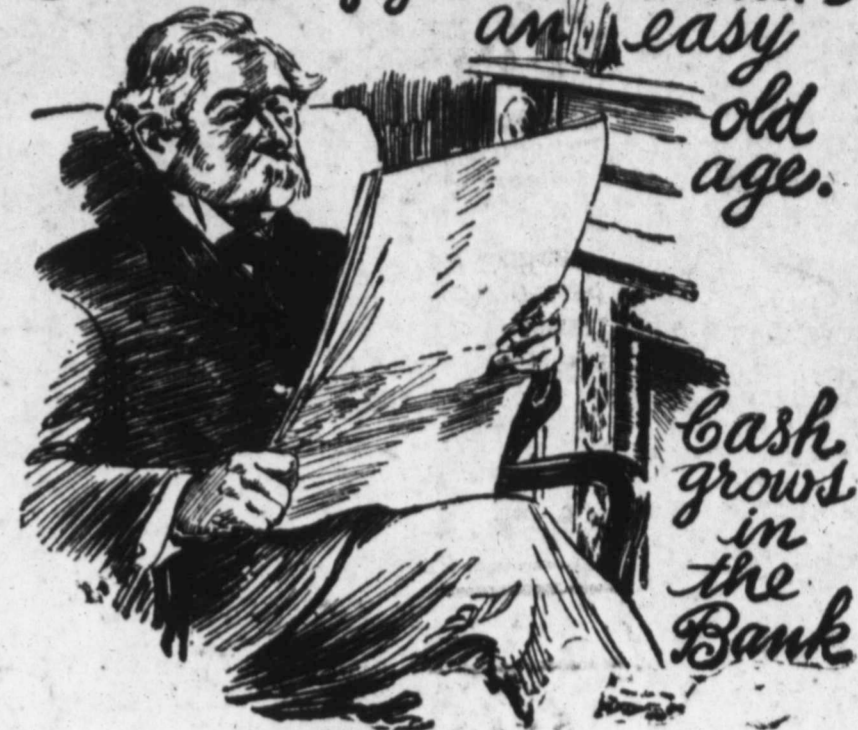 an easy
old
age.
Cash
grows
in
the
Bank